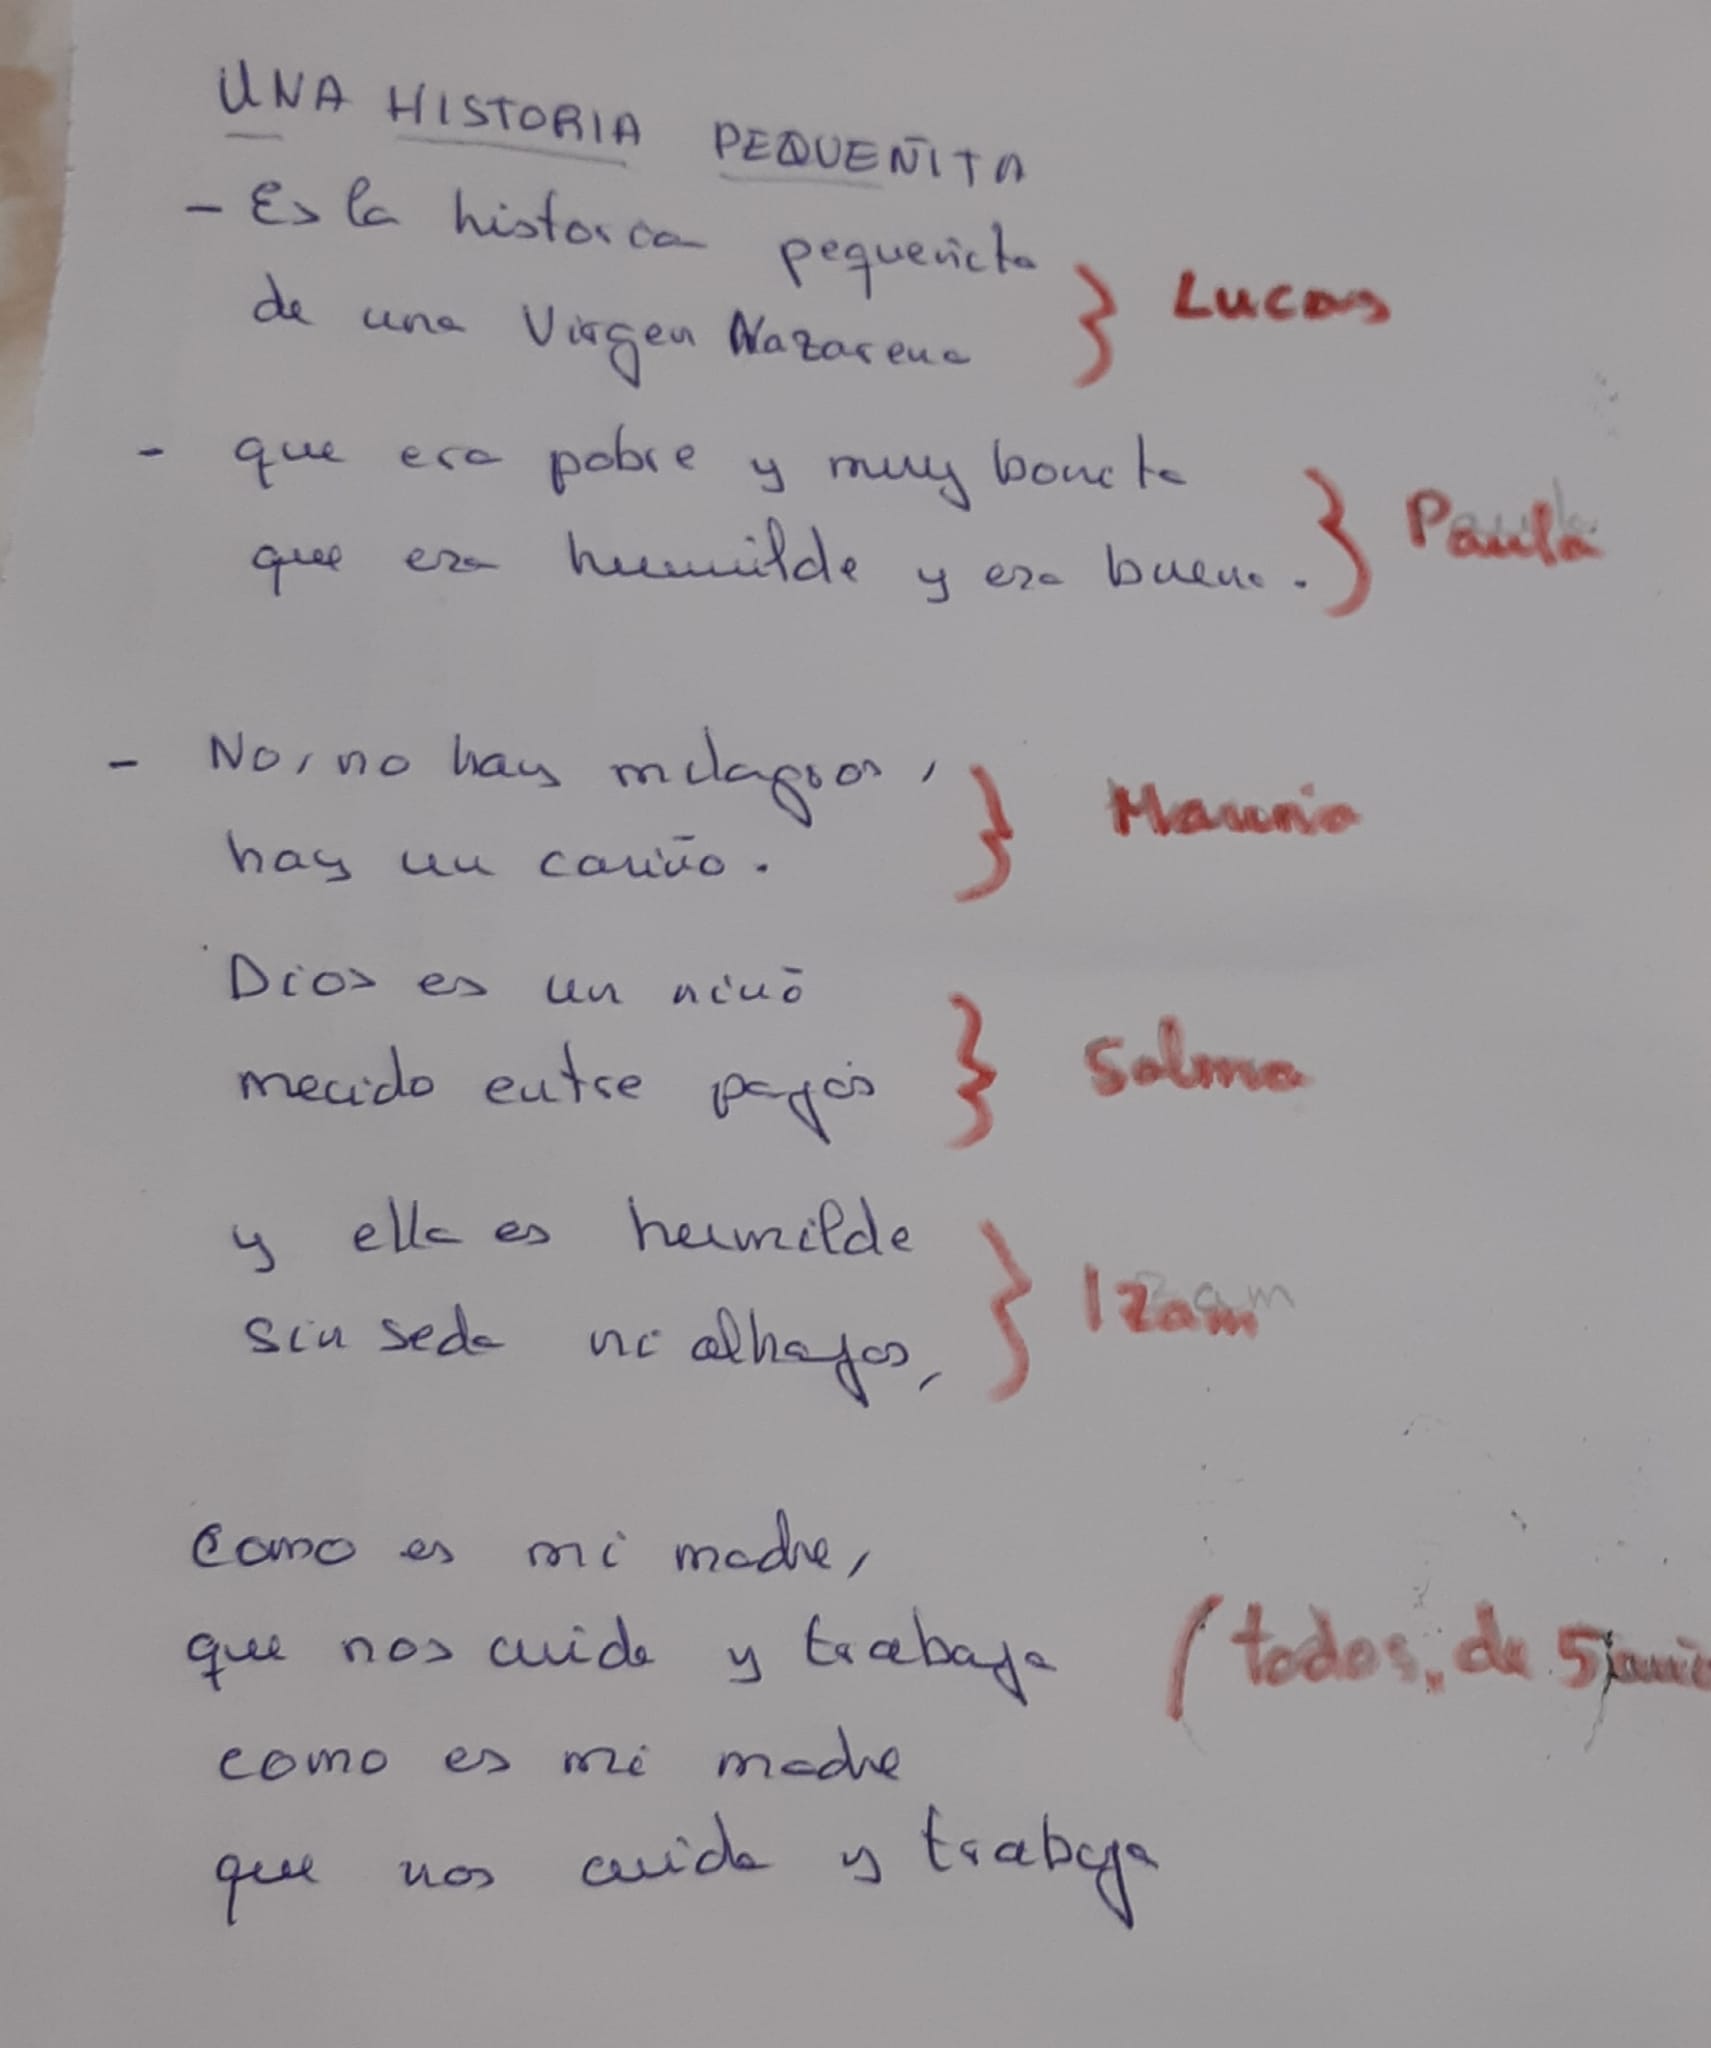 UNA HISTORIA PEQUEÑITA
- Es la historia pequeñita
de una Virgen Nazarena } Lucas
- que era pobre y muy bonita
que era humilde y era buena. } Paula
- No, no hay milagros,
hay un cariño.
Dios es un niño
mecido entre pajas } Salma
y ella es humilde
sin seda ni alhajas, } Izam
Como es mi madre,
que nos cuida y trabaja (todos, de 5
como es mi madre
que nos cuida y trabaja